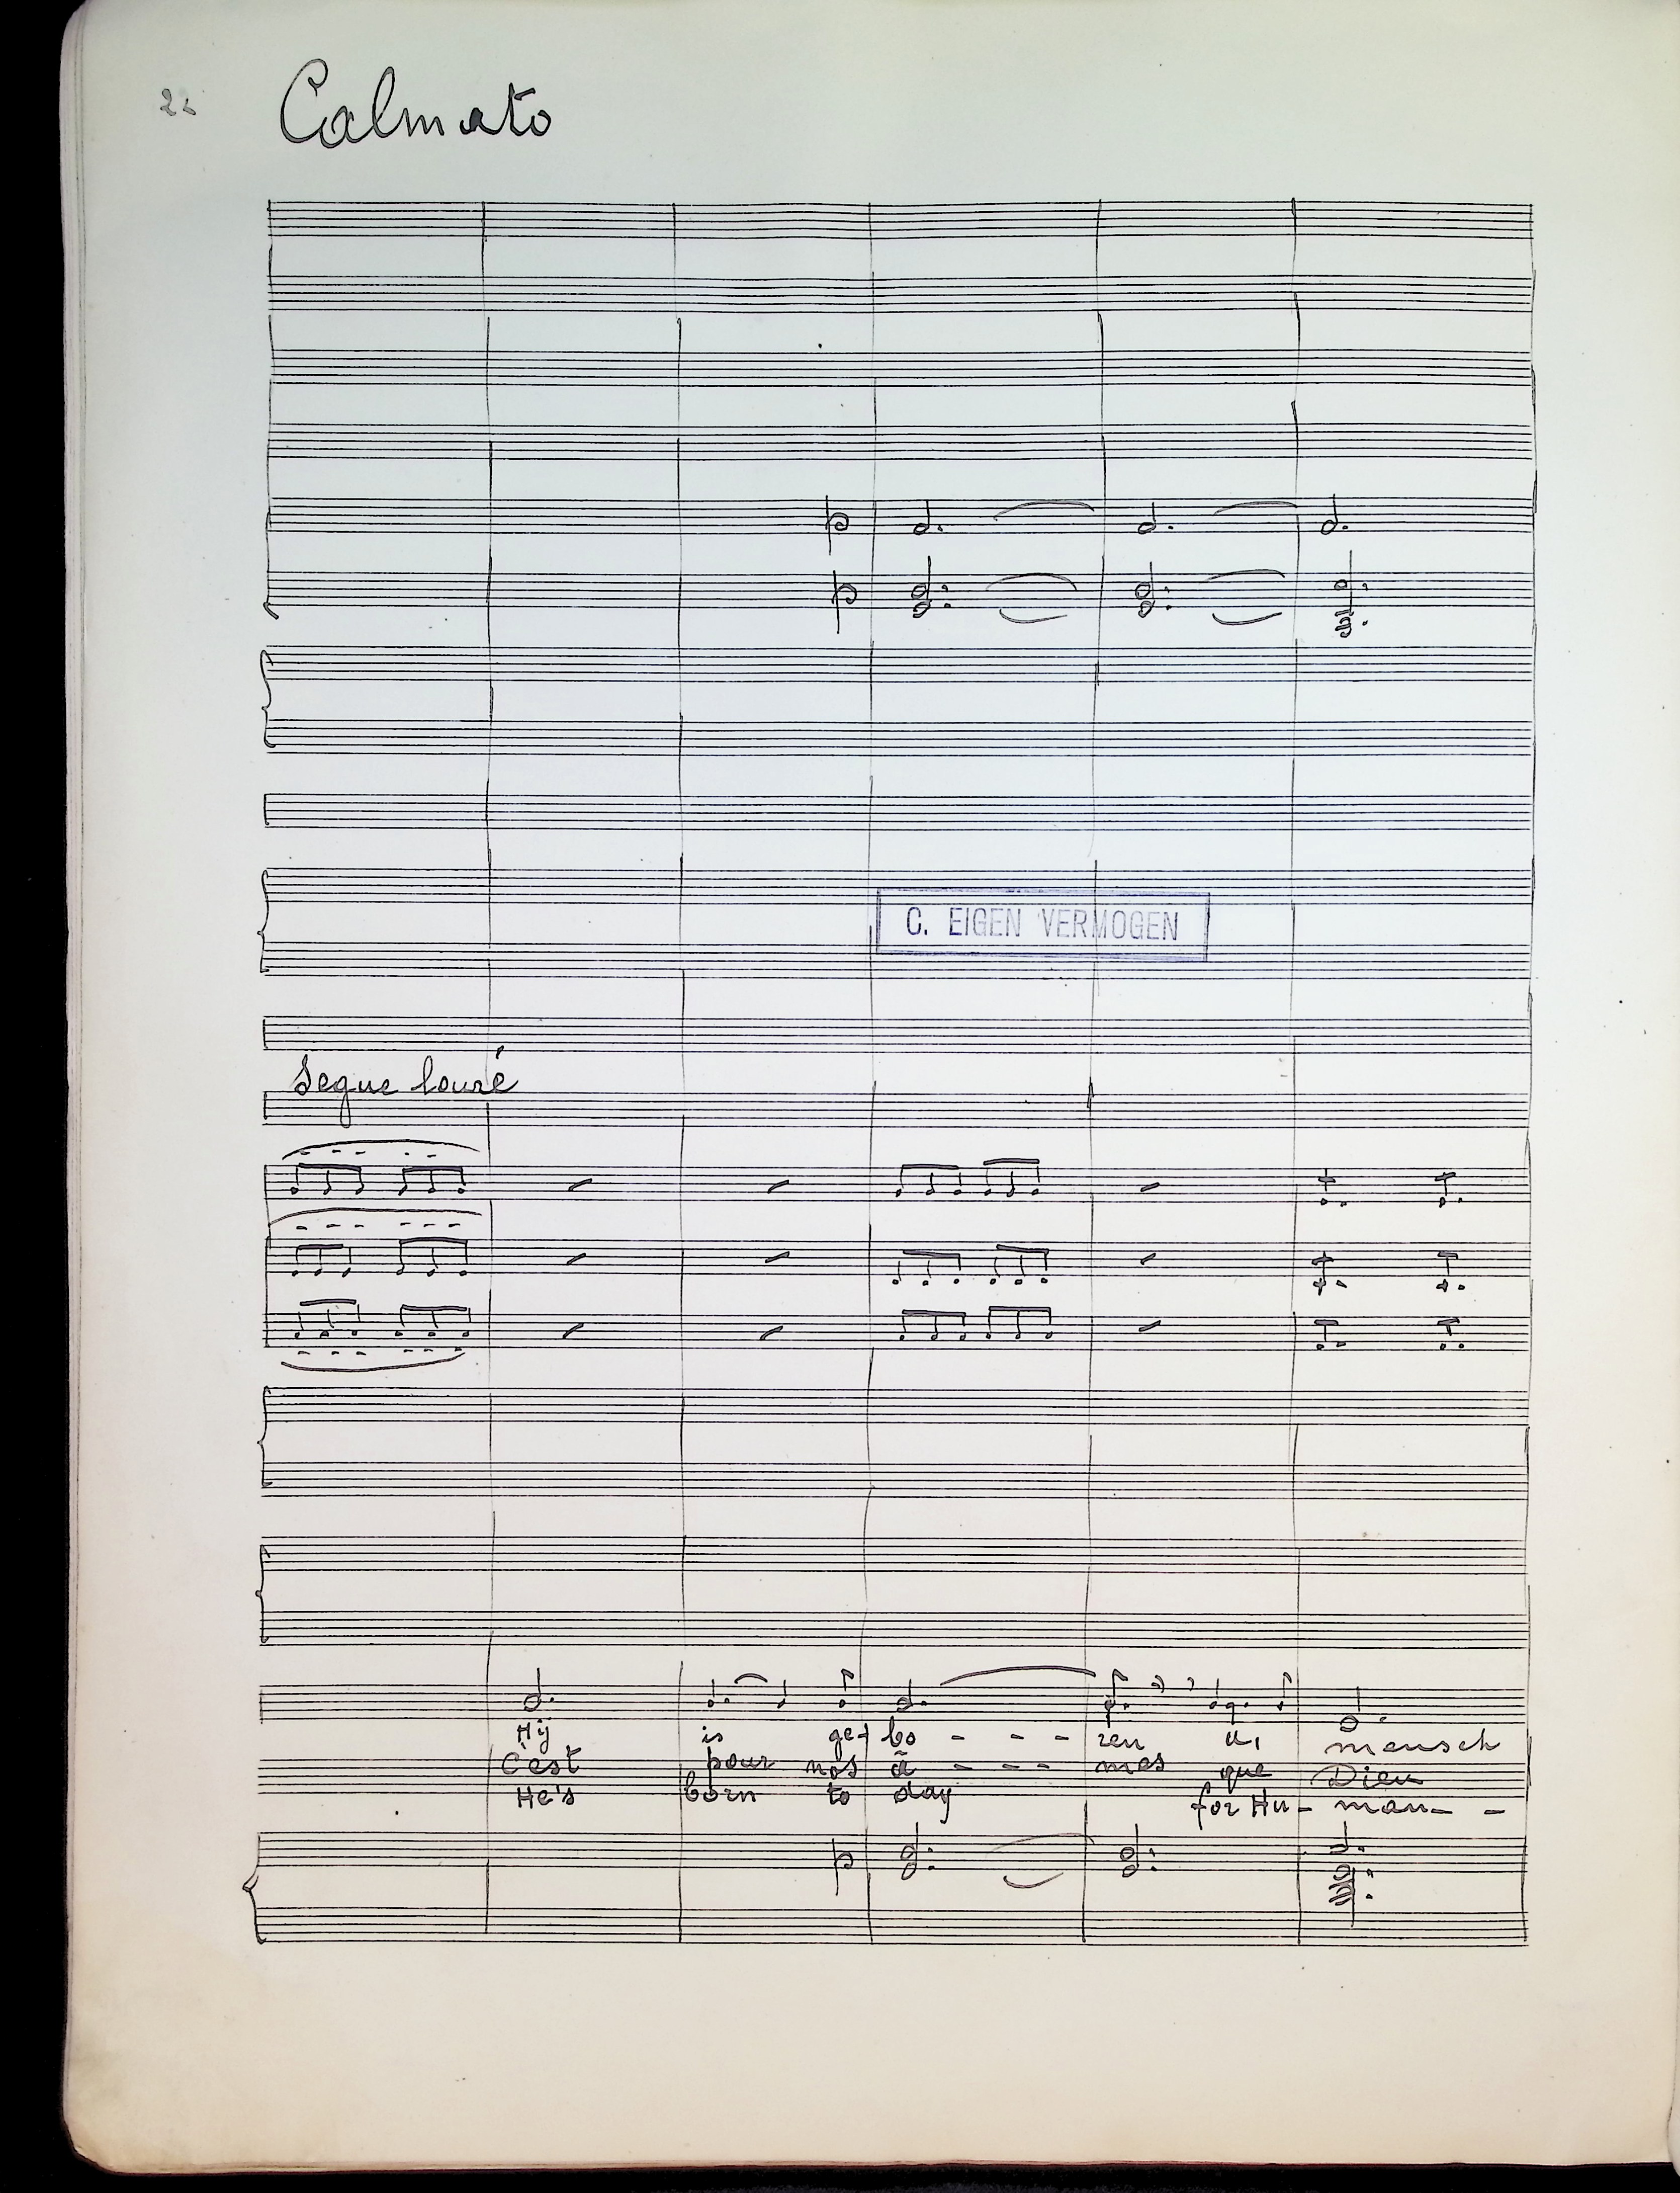 22 Calmato
C. EIGEN VERMOGEN
Segue louré
Hij is ge- bo - - - ren u, mensch
C'est pour nos â - - - mes que Dieu
He's born to day for Hu- man- -